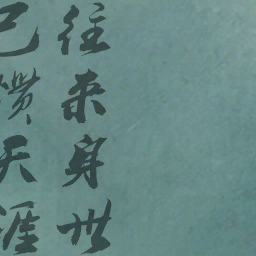 往来身世
已惯天涯